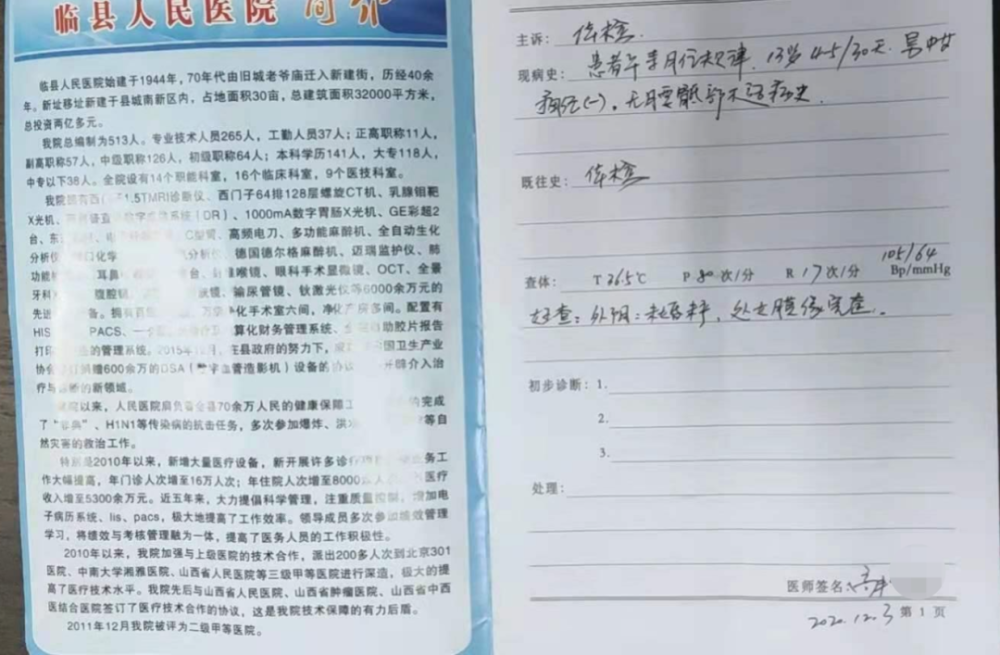 临县人民医院 简介
临县人民医院始建于1944年,70年代由旧城老爷庙迁入新建街,历经40余
年。新址移址新建于县城南新区内,占地面积30亩,总建筑面积32000平方米,
总投资两亿多元。
我院总编制为513人。专业技术人员265人,工勤人员37人;正高职称11人,
副高职称57人,中级职称126人,初级职称64人;本科学历141人,大专118人,
中专以下38人。全院设有14个职能科室,16个临床科室,9个医技科室。
我院拥有西门子1.5TMRI诊断仪、西门子64排128层螺旋CT机、乳腺钼靶
X光机、数字系统(DR)、1000mA数字胃肠X光机、GE彩超2
台、C型臂、高频电刀、多功能麻醉机、全自动生化
分析仪、化学分析仪、德国德尔格麻醉机、迈瑞监护仪、肺
功能、耳鼻台、喉镜、眼科手术显微镜、OCT、全景
牙科、腹腔镜、镜、输尿管镜、钬激光仪等6000余万元的
先进设备。拥有百级、万级净化手术室六间,净化产房多间。配置有
HIS、PACS、一卡算化财务管理系统、自助胶片报告
打印的管理系统。2015年12月,在县政府的努力下,国卫生产业
协会捐赠600余万的DSA(数字血管造影机)设备的协议,开辟介入治
疗与诊断的新领域。
院以来,人民医院肩负着全县70余万人民的健康保障工完成
了“非典”、H1N1等传染病的抗击任务,多次参加爆炸、洪等自
然灾害的救治工作。
特别是2010年以来,新增大量医疗设备,新开展许多诊疗务工
作大幅提高,年门诊人次增至16万人次;年住院人次增至8000医疗
收入增至5300余万元。近五年来,大力提倡科学管理,注重质量控制,增加电
子病历系统、lis、pacs,极大地提高了工作效率。领导成员多次参加绩效管理
学习,将绩效与考核管理融为一体,提高了医务人员的工作积极性。
2010年以来,我院加强与上级医院的技术合作,派出200多人次到北京301
医院、中南大学湘雅医院、山西省人民医院等三级甲等医院进行深造,极大的提
高了医疗技术水平。我院先后与山西省人民医院、山西省肿瘤医院、山西省中西
医结合医院签订了医疗技术合作的协议,这是我院技术保障的有力后盾。
2011年12月我院被评为二级甲等医院。
主诉:体检.
现病史:患者平素月经规律,13岁 4-5/30天.
痛经(-),无腰骶部不适病史.
既往史:体检
查体: T 36.5℃ P 80次/分 R 17次/分 105/64 Bp/mmHg
妇查:外阴:未婚,处女膜缘完整.
初步诊断:1.
2.
3.
处理:
医师签名:
2020.12.3 第1页